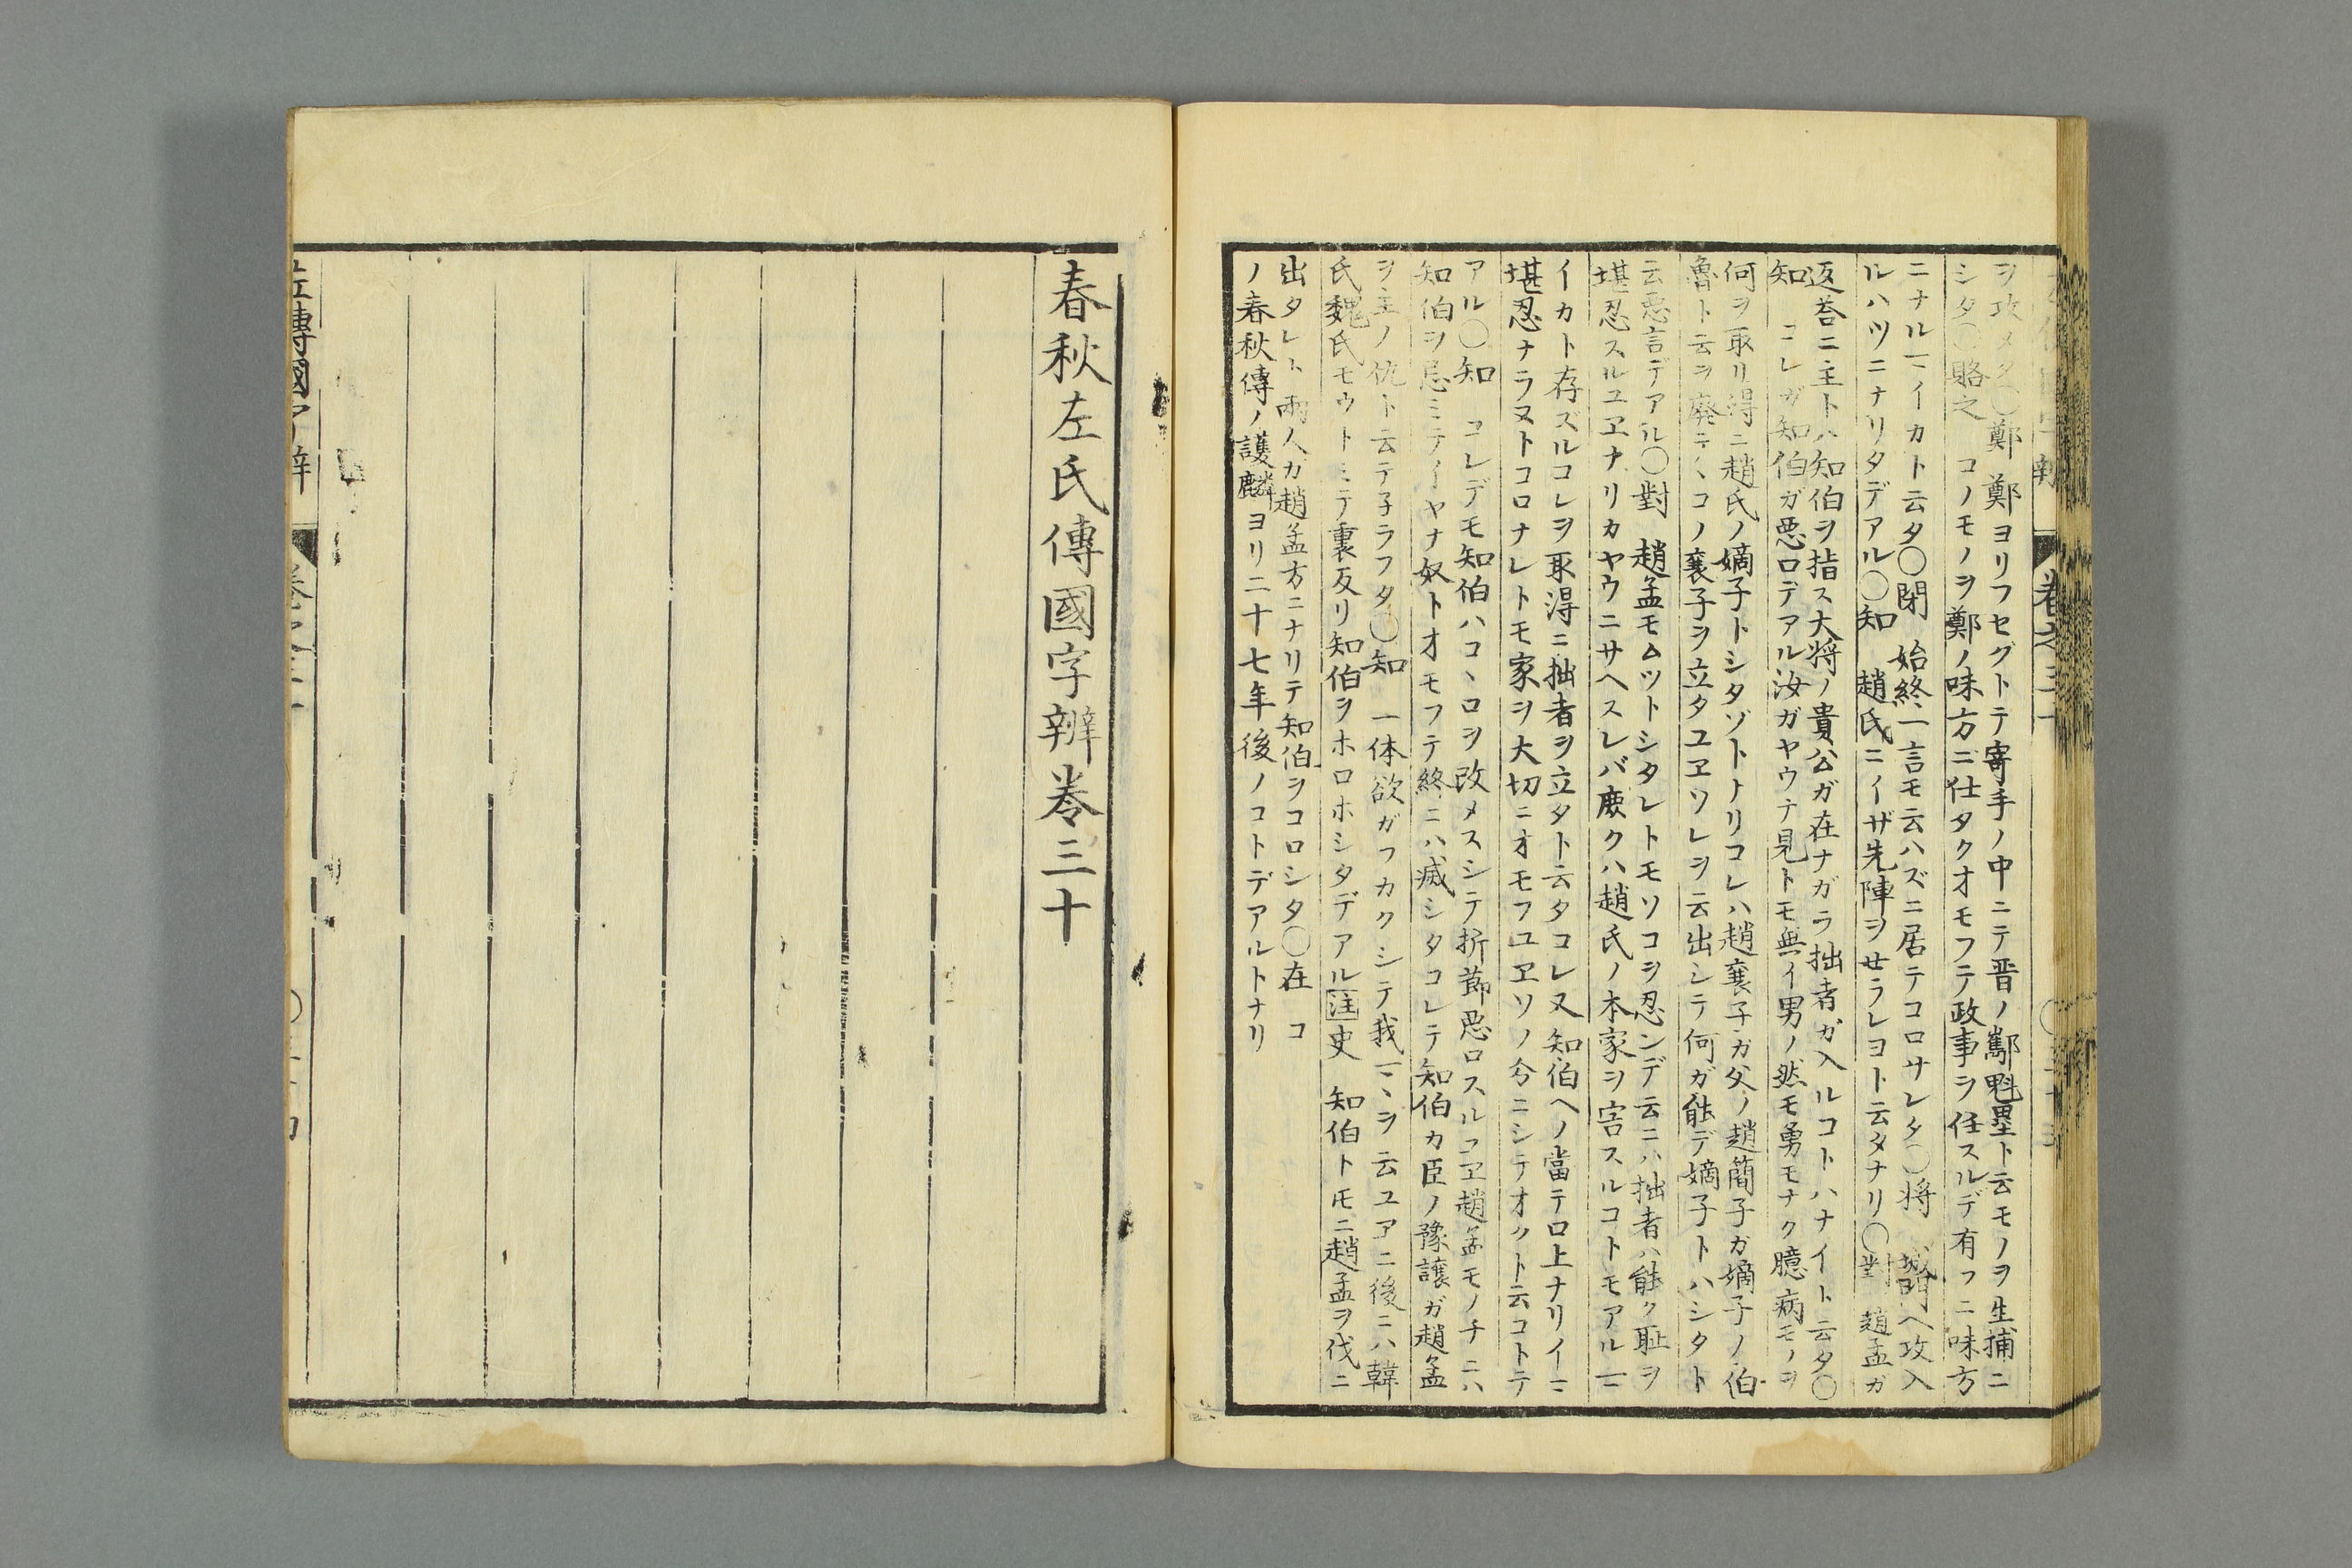 ヲ攻メタ〇鄭　鄭ヨリフセグトテ寄手ノ中ニテ晋ノ酅魁壘ト云モノヲ生捕ニ
シタ〇賂之　コノモノヲ鄭ノ味方ニ仕タクオモフテ政事ヲ任スルデ有フニ味方
ニナルヿイカト云タ〇閉　始終一言モ云ハズニ居テコロサレタ〇将　城門ヘ攻入
ルハツニナリタデアル〇知　趙氏ニイザ先陣ヲせラレヨト云タナリ〇對　趙孟ガ
返荅ニ主トハ知伯ヲ指ス大将ノ貴公ガ在ナガラ拙者ガ入ルコトハナイト云タ〇
知　コレガ知伯ガ悪口デアル汝ガヤウナ見トモ無イ男ノ然モ勇モナク臆病モノヲ
何ヲ取リ得ニ趙氏ノ嫡子トシタゾトナリコレハ趙襄子ガ父ノ趙簡子ガ嫡子ノ伯
魯ト云ヲ廢テヽコノ襄子ヲ立タユヱソレヲ云出シテ何ガ能デ嫡子トハシタト
云悪言デアル〇對　趙孟モムツトシタレトモソコヲ忍ンデ云ニハ拙者ハ能ク耻ヲ
堪忍スルユヱナリカヤウニサヘスレバ庻クハ趙氏ノ本家ヲ害スルコトモアルヿ
イカト存ズルコレヲ取得ニ拙者ヲ立タト云タコレ又知伯ヘノ當テ口上ナリイヿ
堪忍ナラヌトコロナレトモ家ヲ大切ニオモフユヱソノ今ニシテオクト云コトテ
アル〇知　コレデモ知伯ハコヽロヲ改メスシテ折莭悪口スルユヱ趙孟モノチニハ
知伯ヲ忌ミテイヤナ奴トオモフテ終ニハ滅シタコレテ知伯カ臣ノ豫讓ガ趙孟
ヲ主ノ仇ト云テ子ラフタ〇知　一体欲ガフカクシテ我ヿヽヲ云ユアニ後ニハ韓
氏魏氏モウトミテ裏反リ知伯ヲホロホシタデアル注史　知伯トモニ趙孟ヲ伐ニ
出タレト兩人カ趙孟方ニナリテ知伯ヲコロシタ〇在　コ
ノ春秋傳ノ護麟ヨリ二十七年後ノコトデアルトナリ
春秋左氏傳國字辨巻三十